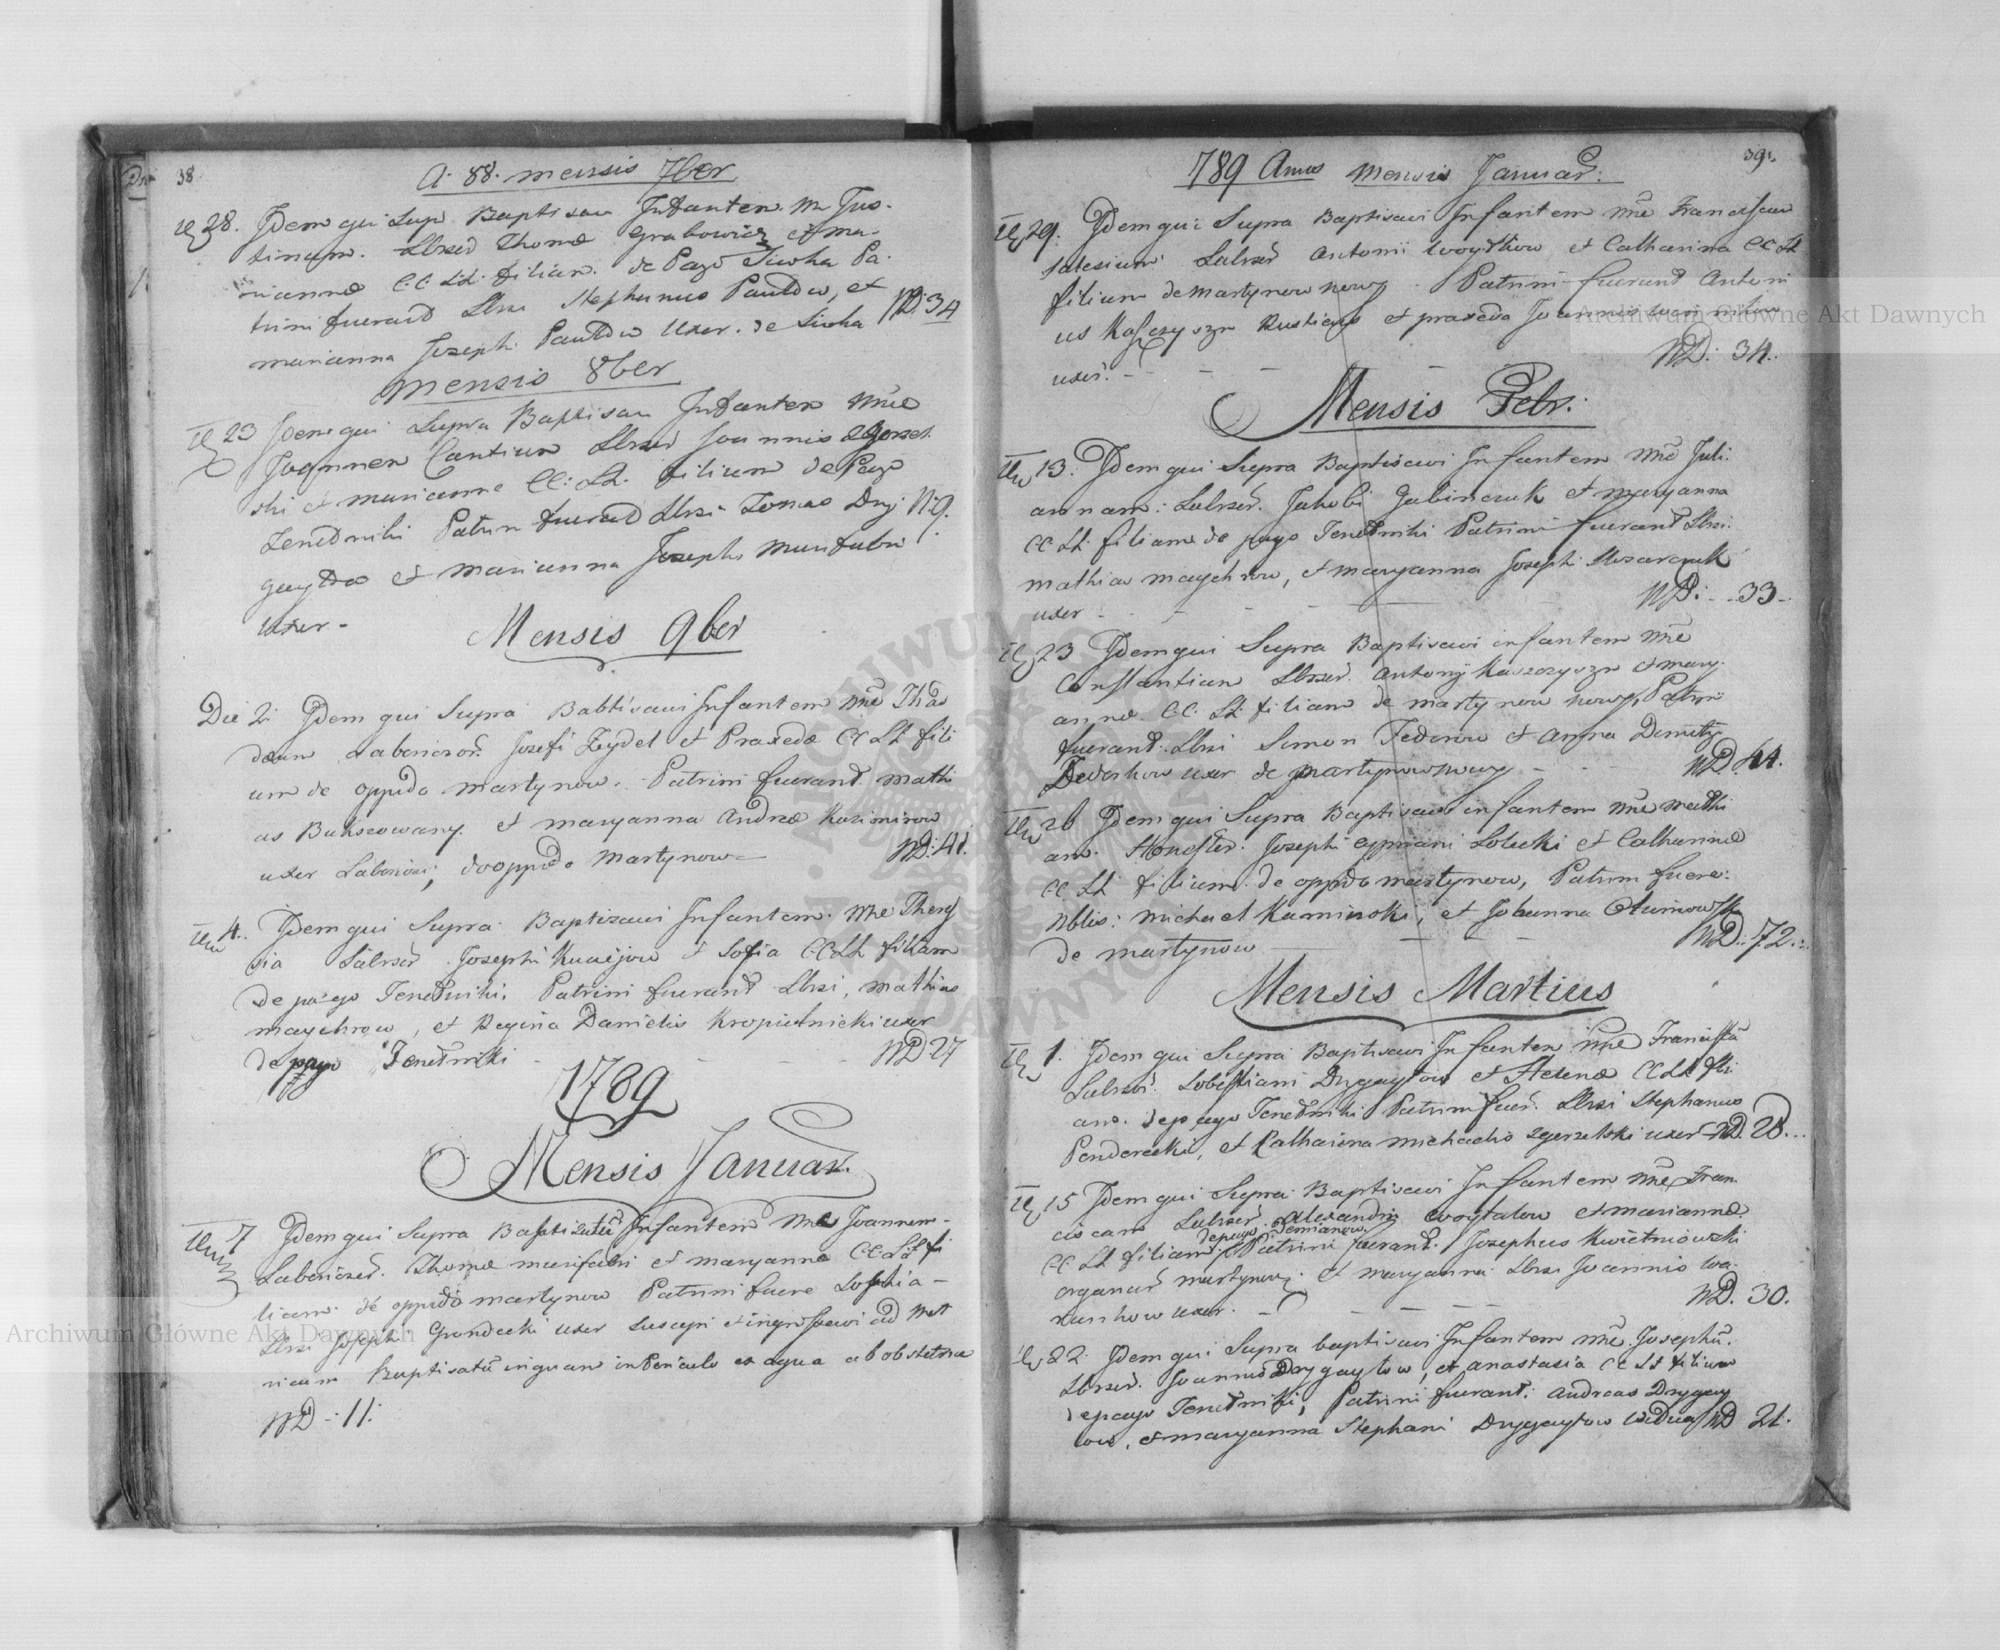 38
A. 88. mensis 7ber
28. Idem qui Supr. Baptisavi Infantem. N. Jus-
tinum. Lbrsd Thomæ Grabowicz et Ma-
riannæ CC: LL. filium. de Pago Siwka Pa-
trini fuerunt Lbri Stephanus Pawłow, et
marianna Joseph. Pawłow Uxor. de Siwka ND: 34
mensis 8ber
23 Idem qui Supra Baptisavi Infantem Nne
Joannem Cantium Lbrsd Joannis Zgorzel
ski et mariannæ CC: LL. filium de Pago
Tenetniki Patrini fuerunt Lbrsi Tomas Dry N: 9.
gaytow et marianna Joseph Muntabri
Uxor -
Mensis 9ber
Die 2: Idem qui Supra Babtisavi Infantem Nne Tha
deum Labonosor. Josefi Zeydel et Praxedæ CC LL fili
um de oppido martynow. Patrini fuerunt mathi
as Bukszowany. et maryanna Andreæ Kazimirow
uxor Laboriosi, de oppido Martynow - ND: 41.
4. Idem qui Supra. Baptizavi Infantem. Nne There
sia Labrsd Josephi Kuniejow et Sofia CC LL filiam
de pago Tenetniki. Patrini fuerunt Lbrsi, Mathias
maychrow, et Regina Danielis Kropiwnicki uxor
de pago Tenetniki - - - ND 27
1789
Mensis Januar.
7 Idem qui Supra Baptisatū Infantem Nne Joannem-
Laboriosd. Thomæ munfabri et maryannæ CC. LL fi
lium. de oppido martynow Patrini fuere Sophia -
Lbrsi Josephi Grondecki uxor Suscepi et ingrossavi ad Met
ricam Baptisatū in quam in Periculo ex aqua ab obstetrice
ND -: 11:
39.
789 Annus Mensis Januar:
29. Idem qui Supra Baptisavi Infantem Nne Franciscum
Salesium Labrsd Antonii Woytkow et Catharina CC LL
filium de Martynow nowy - Patrini fuerunt Antoni
us Kaszczyszyn Rusticus et praxeda Joannis
uxor. - - - - - ND: 34.
Mensis Febr:
13. Idem qui Supra Baptisavi Infantem Nne Juli-
annam: Labrsd. Jakobi Gabinczuk et Maryanna
CC LL filiam de pago Tenetniki Patrini fuerunt Lbrsi.
Mathias maychrow, et maryanna Joseph
uxor - - - - ND: - 33 -
23 Idem qui Supra Baptisavi infantem Nne
Constantiam Lbrsd. Antonij Kaszczyszyn et mary
annæ. CC. LL filiam de martynow nowy, Patrin
fuerunt. Lbrsi Simon Fedorow et Anna Demetry
Fedorkow uxor de Martynow nowy - - - ND 44.
26 Idem qui Supra Baptisavi infantem Nne Mathi
am. Honester. Josephi Cypriani Solecki et Catharinæ
CC LL filium. de oppido martynow, Patrini fuere:
Nblis: Michael Kaminski, et Johanna
de martynow - - - ND: 72.
Mensis Martius
1. Idem qui Supra Baptisavi Infantem Nne Franciscā
Labrsd. Sobestiani Drygaytow et Helenæ CC LL fili
am. de pago Tenetniki Patrini fuer. Lbrsi Stephanus
Penderecki, et Catharina Michaelis Zgorzelski uxor ND. 28...
15 Idem qui Supra Baptisavi Infantem Nne Fran
ciscam Labrsd. Alexandri Woytalow et Mariannæ
de pago Demianow
CC LL filiam. Patrini fuerunt. Josephus Kwietniowski
organar martynow. et Maryanna Lbrsi Joannis
uxor. - - - - ND. 30.
22. Idem qui Supra baptisavi Infantem Nne Josephū.
Lbrsd. Joannis Drygaytow, et Anastasia CC LL filium
de pago Tenetniki, Patrini fuerunt. Andreas Drygay
tow, et maryanna Stephani Drygaytow vidua ND 21.
Archiwum Główne Akt Dawnych
Archiwum Główne Akt Dawnych